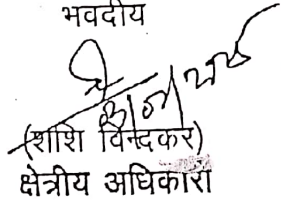 भवदीय
(शशि विन्दकर)
क्षेत्रीय अधिकारी